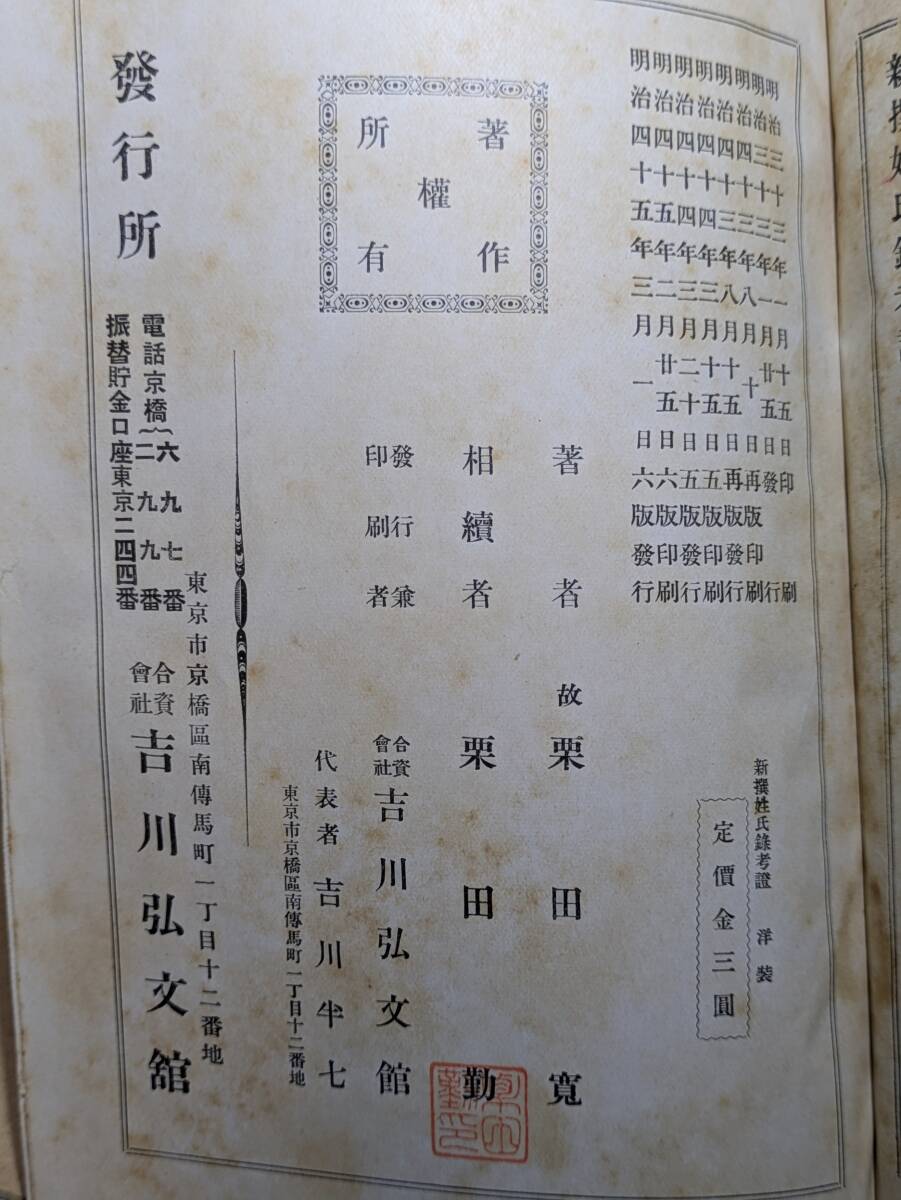 明治三十三年一月十五日印刷
明治三十三年一月廿五日發行
明治四十三年八月十日再版印刷
明治四十三年八月十五日再版發行
明治四十四年三月十五日五版印刷
明治四十四年三月二十日五版發行
明治四十五年二月廿五日六版印刷
明治四十五年三月一日六版發行
新撰姓氏錄考證 洋裝
定價金三圓
著作權所有
著者 故 栗田寬
相續者 栗田勤
栗田勤印
發行兼印刷者 合資會社 吉川弘文館
代表者 吉川半七
東京市京橋區南傳馬町一丁目十二番地
東京市京橋區南傳馬町一丁目十二番地
發行所 合資會社 吉川弘文舘
電話京橋 六九七番 二九九番
振替貯金口座東京二四四番